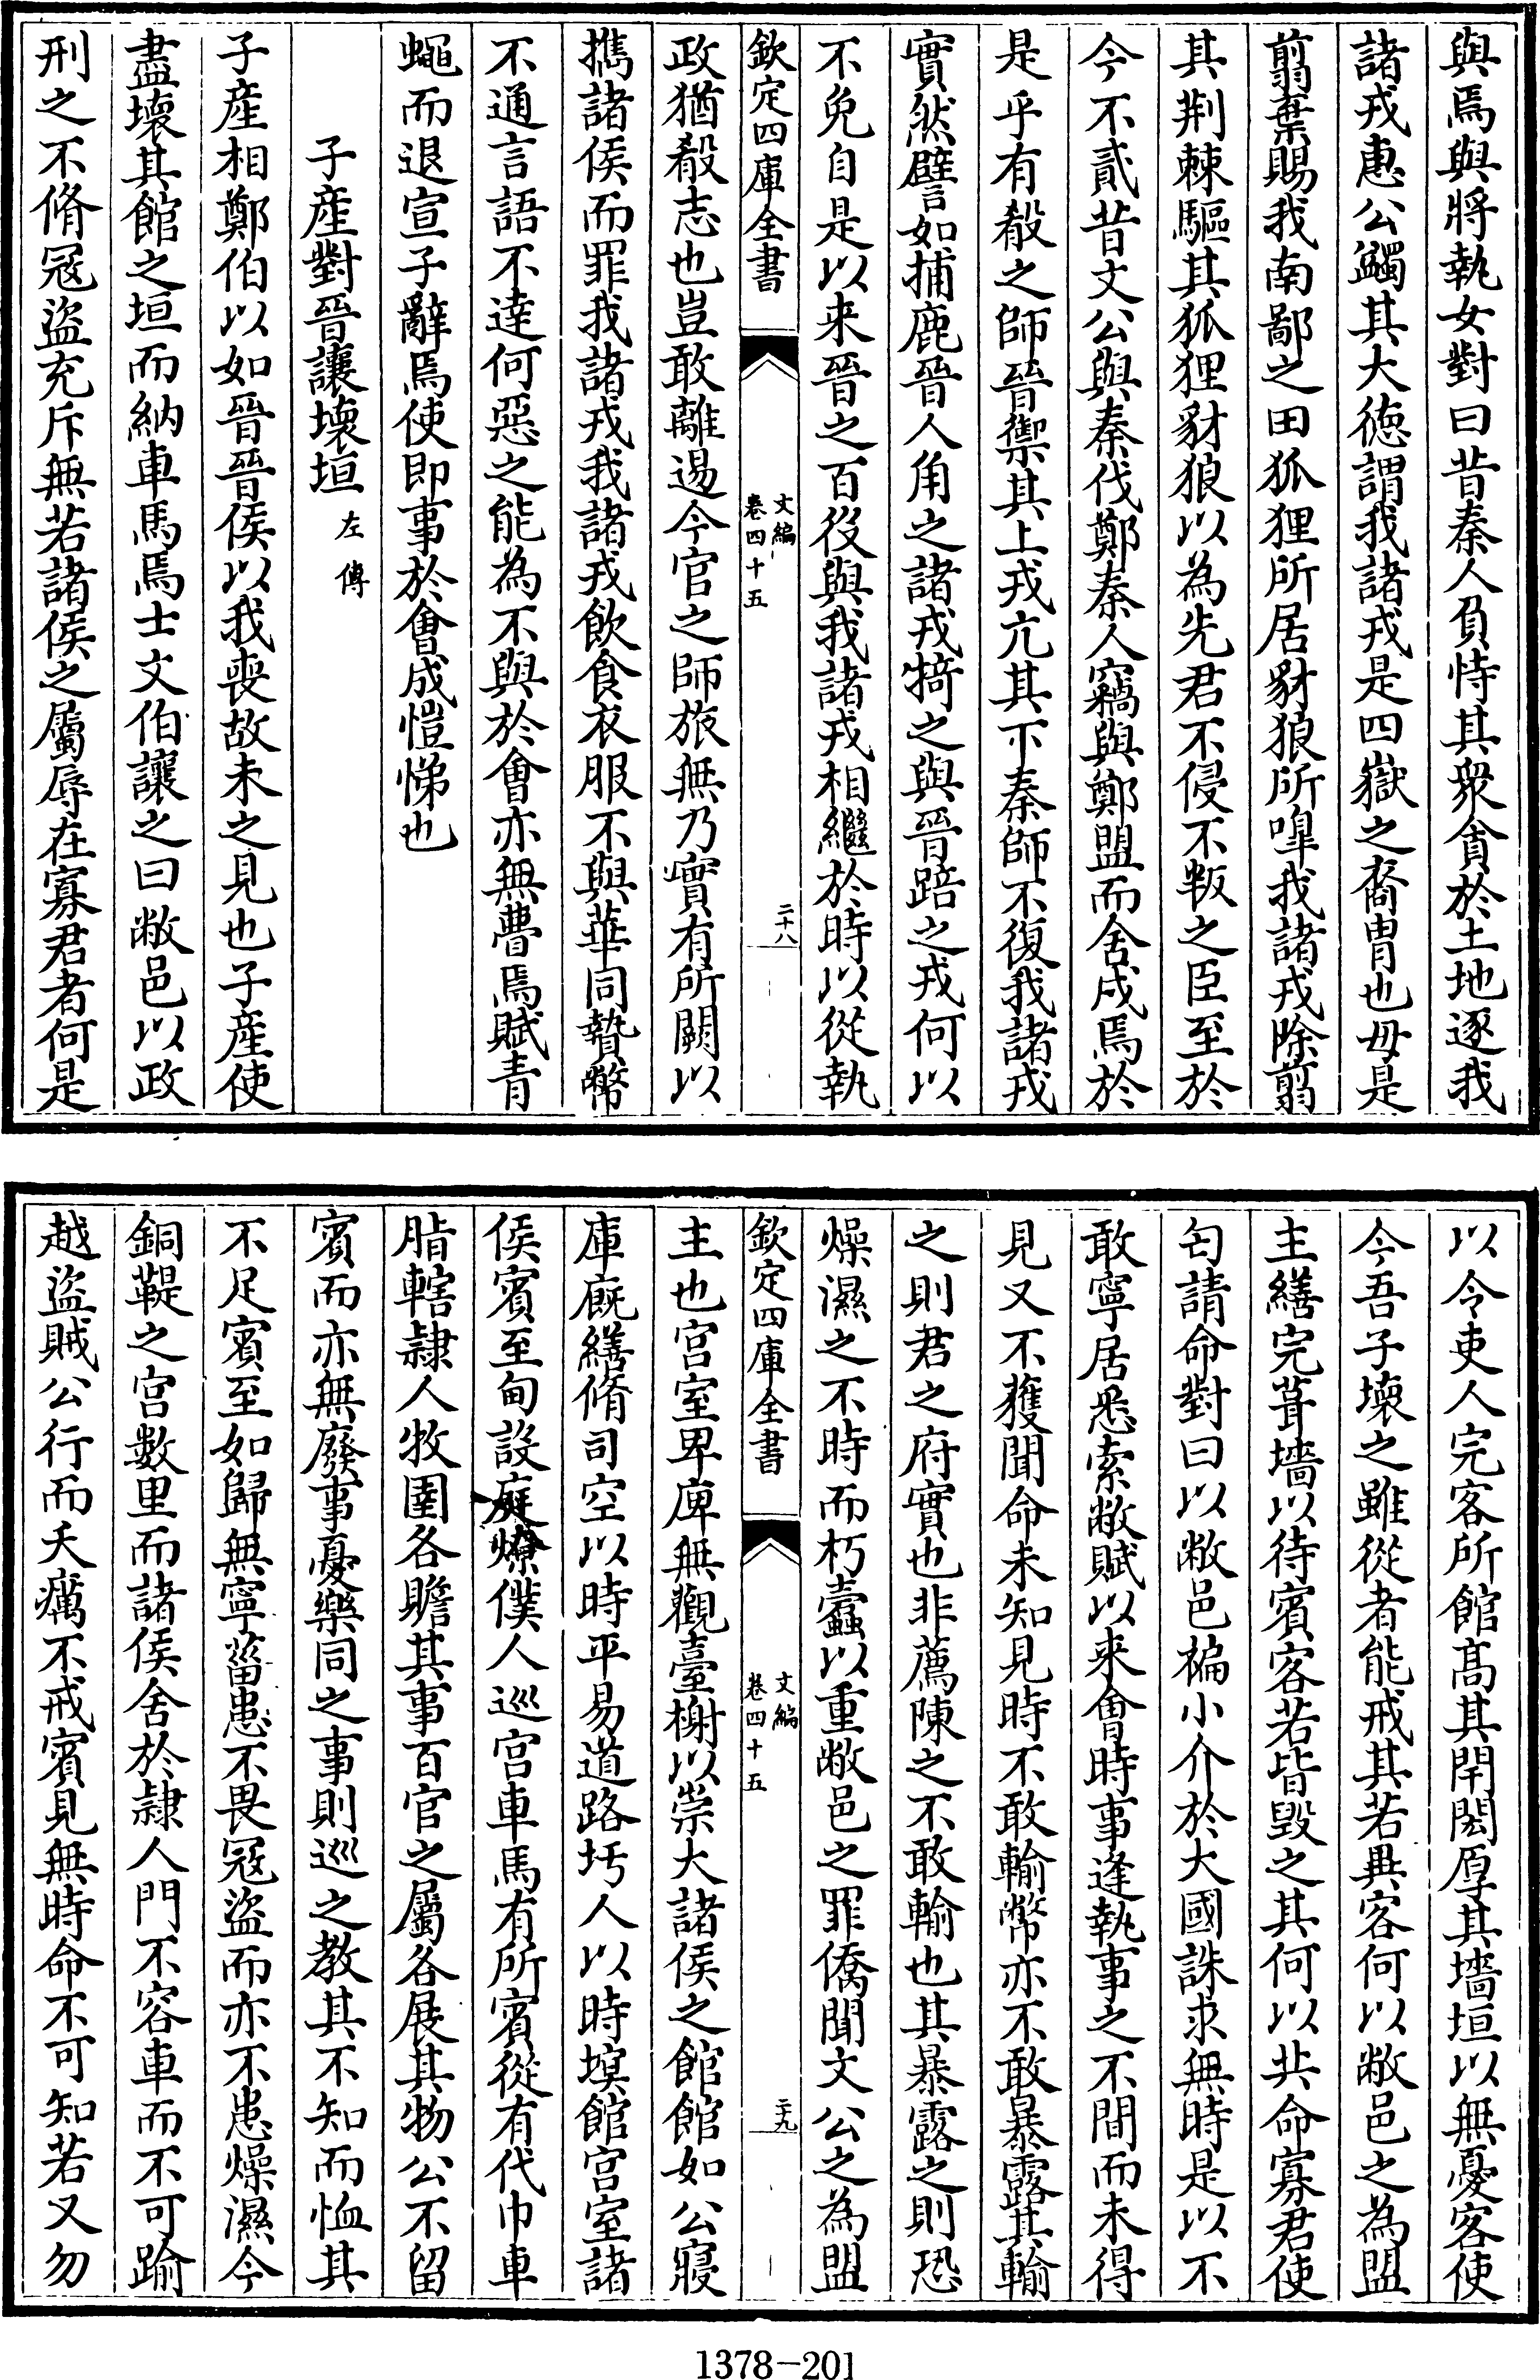 與焉與將執女對曰昔秦人負恃其衆貪於土地逐我
諸戎惠公蠲其大徳謂我諸戎是四嶽之裔胄也毋是
翦棄賜我南鄙之田狐狸所居豺狼所嘷我諸戎除翦
其荆棘驅其狐狸豺狼以為先君不侵不叛之臣至於
今不貳昔文公與秦伐鄭秦人竊與鄭盟而舍戍焉於
是乎有殽之師晉禦其上戎亢其下秦師不復我諸戎
實然譬如捕鹿晉人角之諸戎犄之與晉踣之戎何以
不免自是以来晉之百役與我諸戎相繼於時以從執
欽定四庫全書
文編
卷四十五
二十八
政猶殽志也豈敢離逷今官之師旅無乃實有所闕以
攜諸侯而罪我諸戎我諸戎飲食衣服不與華同贄幣
不通言語不逹何惡之能為不與於會亦無瞢焉賦青
蠅而退宣子辭焉使即事於會成愷悌也
子産對晉讓壞垣左傳
子産相鄭伯以如晉晉侯以我喪故未之見也子産使
盡壞其館之垣而納車馬焉士文伯讓之曰敝邑以政
刑之不脩冦盗充斥無若諸侯之屬辱在寡君者何是
以令吏人完客所館髙其閈閎厚其墻垣以無憂客使
今吾子壞之雖從者能戒其若異客何以敝邑之為盟
主繕完葺墻以待賓客若皆毁之其何以共命寡君使
匄請命對曰以敝邑褊小介於大國誅求無時是以不
敢寧居悉索敝賦以来會時事逢執事之不間而未得
見又不獲聞命未知見時不敢輸幣亦不敢暴露其輸
之則君之府實也非薦陳之不敢輸也其暴露之則恐
燥濕之不時而朽蠧以重敝邑之罪僑聞文公之為盟
欽定四庫全書
文編
卷四十五
二十九
主也宫室卑庳無觀臺榭以崇大諸侯之館館如公寢
庫廐繕脩司空以時平易道路圬人以時塓館宫室諸
侯賓至甸設庭燎僕人巡宫車馬有所賓從有代巾車
脂轄隷人牧圉各瞻其事百官之屬各展其物公不留
賓而亦無廢事憂樂同之事則巡之教其不知而恤其
不足賓至如歸無寧菑患不畏冦盗而亦不患燥濕今
銅鞮之宫數里而諸侯舍於隷人門不容車而不可踰
越盗賊公行而夭癘不戒賓見無時命不可知若又勿
1378-201